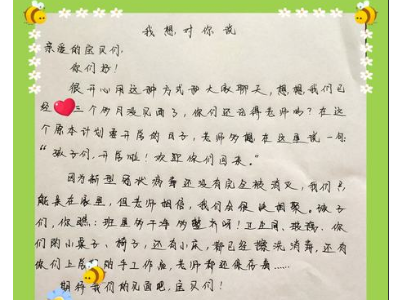 我想对你说
亲爱的宝贝们:
你们好!
很开心用这种方式和大家聊天,想想我们已
经三个多月没见面了,你们还记得老师吗?在这
个原本计划要开学的日子,老师多想在这里说一句
"孩子们,开学啦!欢迎你们回来。"
因为新型冠状病毒还没有完全被消灭,我们只
能呆在家里,但老师相信,我们会很快相聚。孩子
们,你瞧:班里多干净多整齐呀!卫生间、玻璃、你
们的小桌子、椅子,还有小床,都已经擦洗消毒,还有
你们上学期的手工作品,老师都还保存着……
期待我们的见面吧,宝贝们!